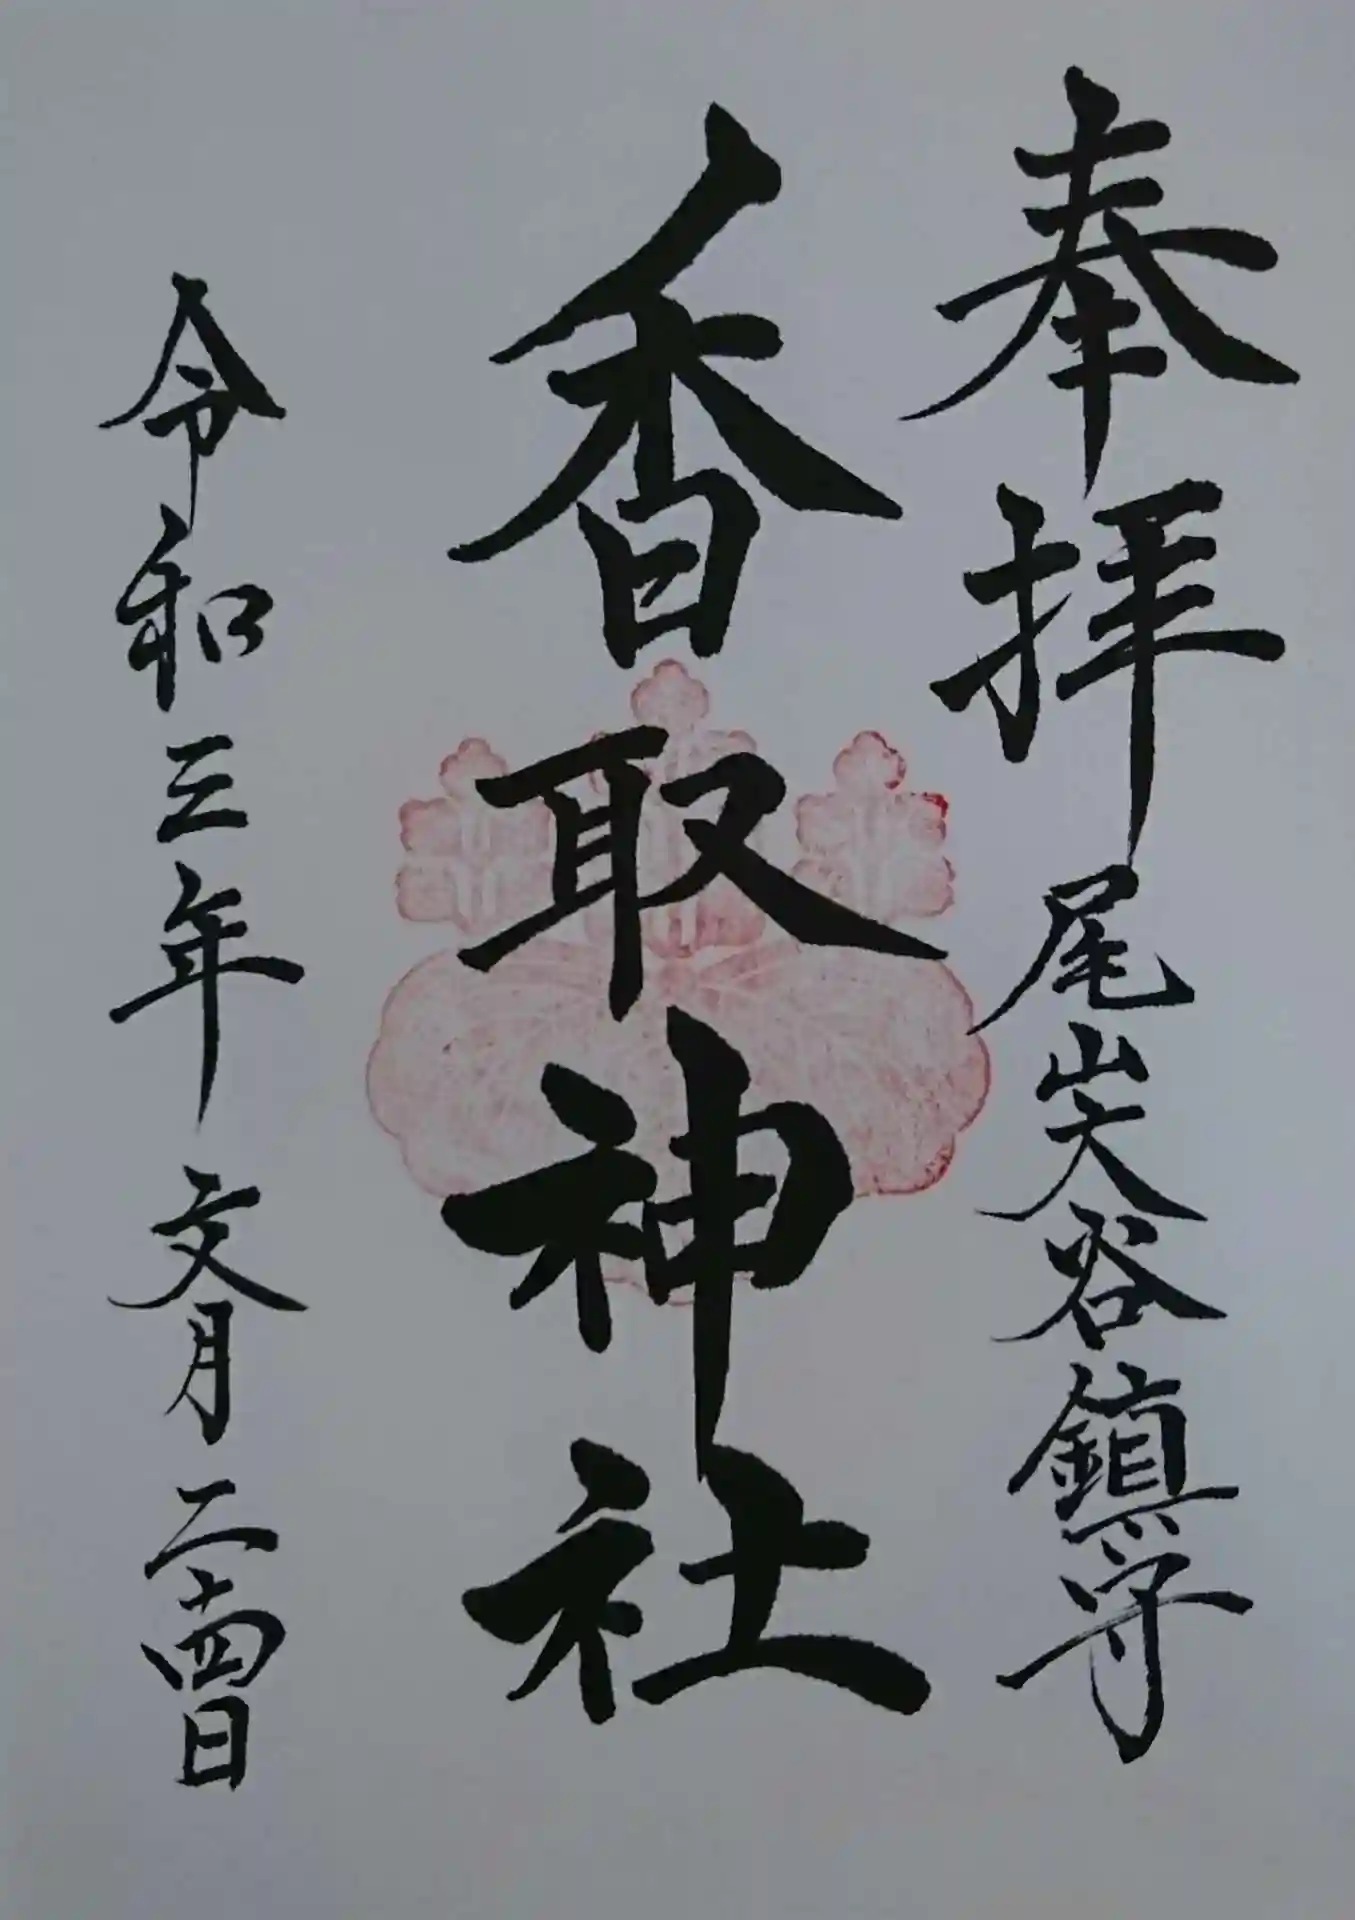 奉拝 尾山大谷鎮守
香取神社
令和三年 文月 二十四日